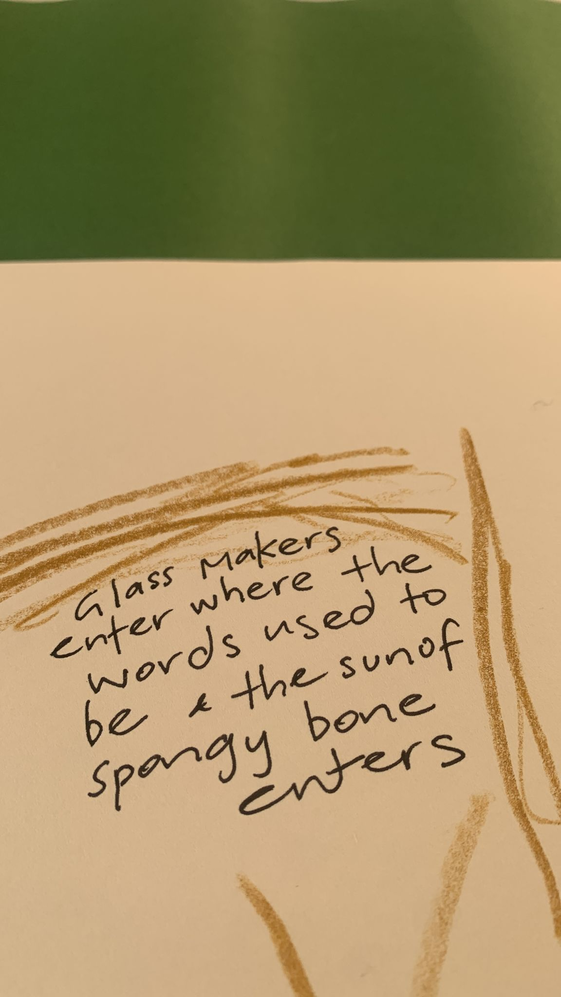 Glass Makers
enter where the
words used to
be & the sun of
spongy bone
enters